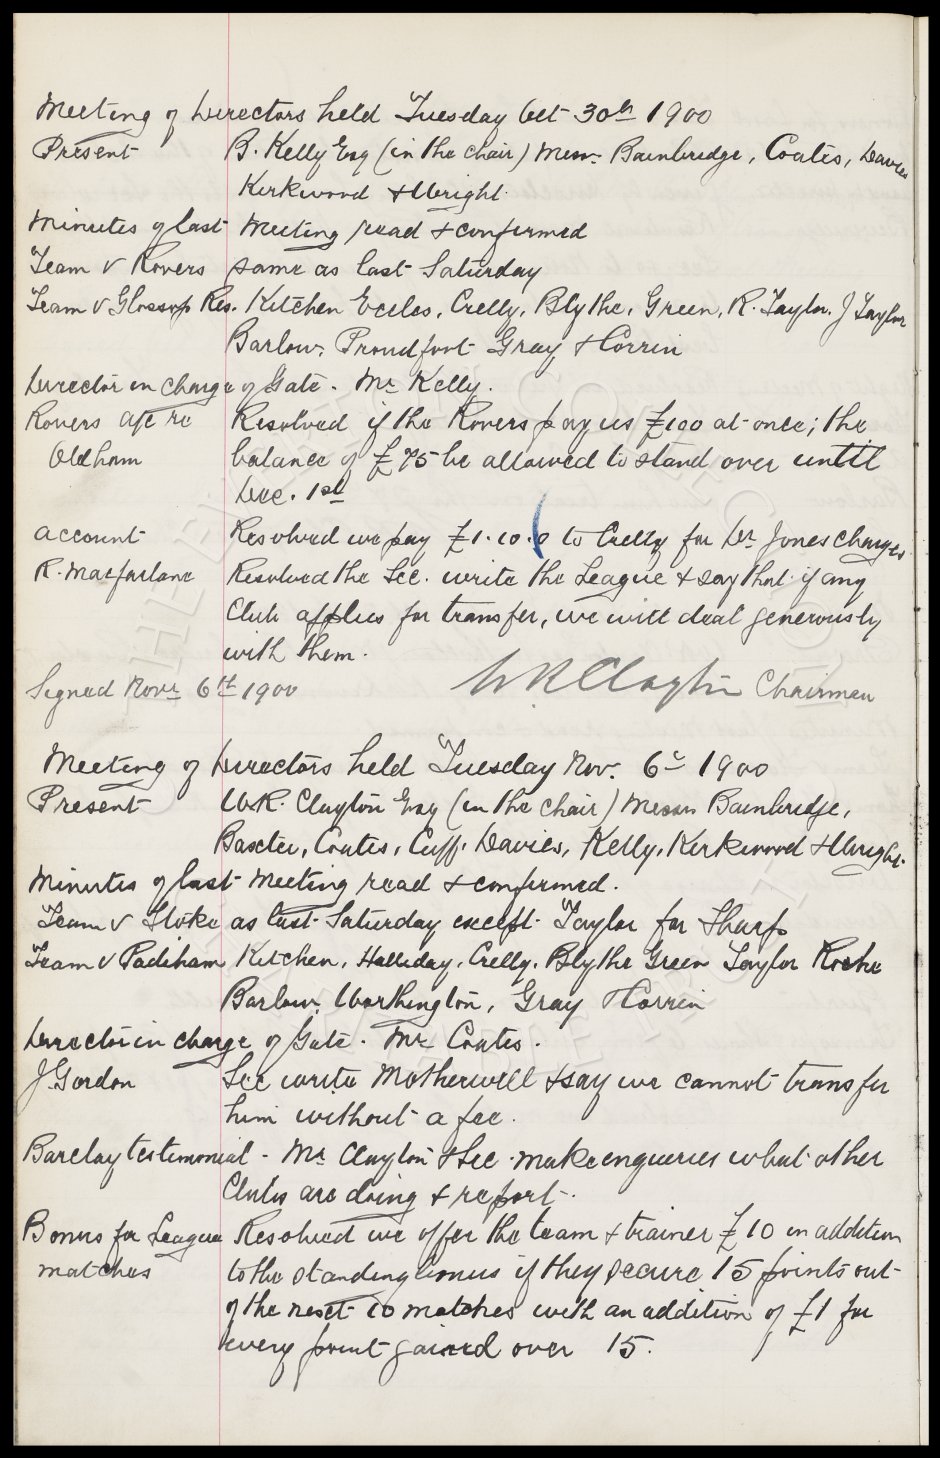 Meeting of Directors held Tuesday Oct 30th 1900
Present B. Kelly Esq (in the chair) Messrs Bainbridge, Coates, Davies
Kirkwood & Wright.
Minutes of last Meeting read & confirmed
Team v Rovers same as last Saturday
Team v Glossop Res. Kitchen Eccles, Crelly, Blythe, Green, R. Taylor, J Taylor
Barlow, Proudfoot Gray & Corrin
Director in charge of Gate - Mr Kelly.
Rovers a/c re Resolved if the Rovers pay us £100 at once; the
Oldham balance of £75 be allowed to stand over until
Dec. 1st
Account Resolved we pay £1.10.0 to Crelly for Dr Jones charges
R. Macfarlane Resolved the Sec. write the League & say that if any
Club applies for transfer, we will deal generously
with them.
Signed Novr 6th 1900 W R Clayton Chairman
Meeting of Directors held Tuesday Nov. 6th 1900
Present W.R. Clayton Esq (in the chair) Messrs Bainbridge,
Baxter, Coates, Cuff, Davies, Kelly, Kirkwood & Wright.
Minutes of last Meeting read & confirmed.
Team v Stoke as last Saturday except Taylor for Sharp
Team v Padiham Kitchen, Halliday, Crelly, Blythe Green Taylor Roche
Barlow, Worthington, Gray & Corrin
Director in charge of Gate - Mr Coates.
J Gordon Sec write Motherwell & say we cannot transfer
him without a fee.
Barclay testimonial - Mr Clayton & Sec. make enquiries what other
Clubs are doing & report.
Bonus for League Resolved we offer the team & trainer £10 in addition
matches to the standing bonus if they secure 15 points out
of the next 10 matches with an addition of £1 for
every point gained over 15.